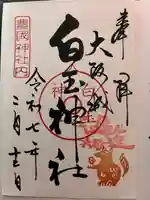 奉拝
大阪城
白玉神社
豊國神社内
令和七年
二月十三日